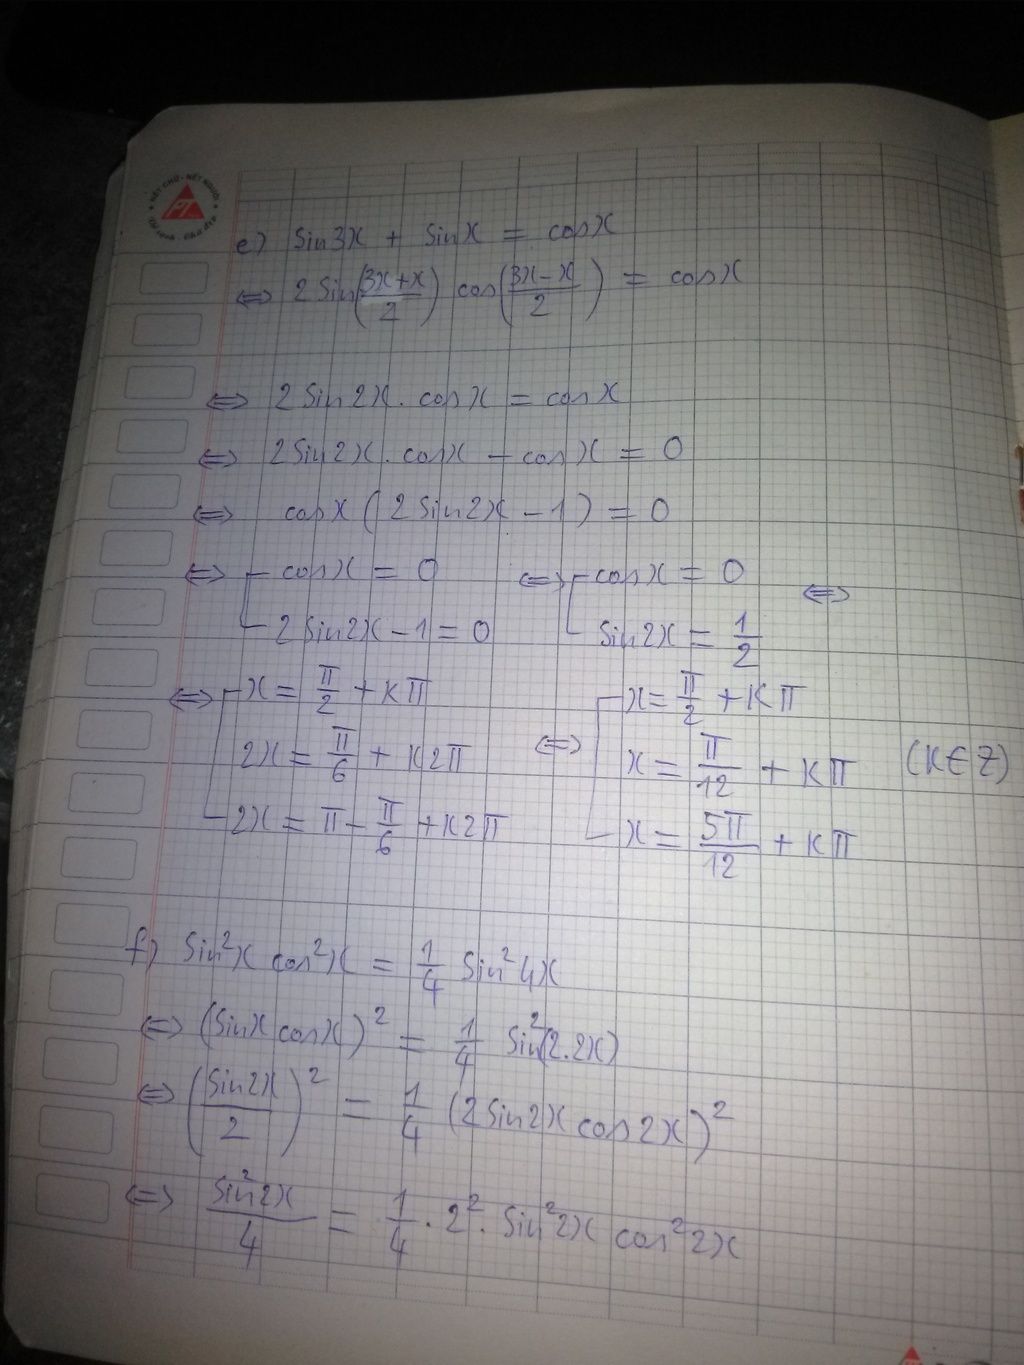 NÉT CHỮ - NẾT NGƯỜI
PT
e) Sin3x + Sinx = cosx
⇔ 2Sin(3x+x/2) cos(3x-x/2) = cosx
⇔ 2Sin2x . cosx = cosx
⇔ 2Sin2x . cosx - cosx = 0
⇔ cosx (2Sin2x - 1) = 0
⇔ [ cosx = 0 ⇔ [ cosx = 0 ⇔
2Sin2x - 1 = 0 Sin2x = 1/2
⇔ [ x = π/2 + kπ ⇔ [ x = π/2 + kπ
2x = π/6 + k2π x = π/12 + kπ (k∈Z)
2x = π - π/6 + k2π x = 5π/12 + kπ
f) Sin²x cos²x = 1/4 Sin²4x
⇔ (Sinx cosx)² = 1/4 Sin²(2.2x)
⇔ (Sin2x/2)² = 1/4 (2Sin2x cos2x)²
⇔ Sin²2x/4 = 1/4 . 2² . Sin²2x cos²2x